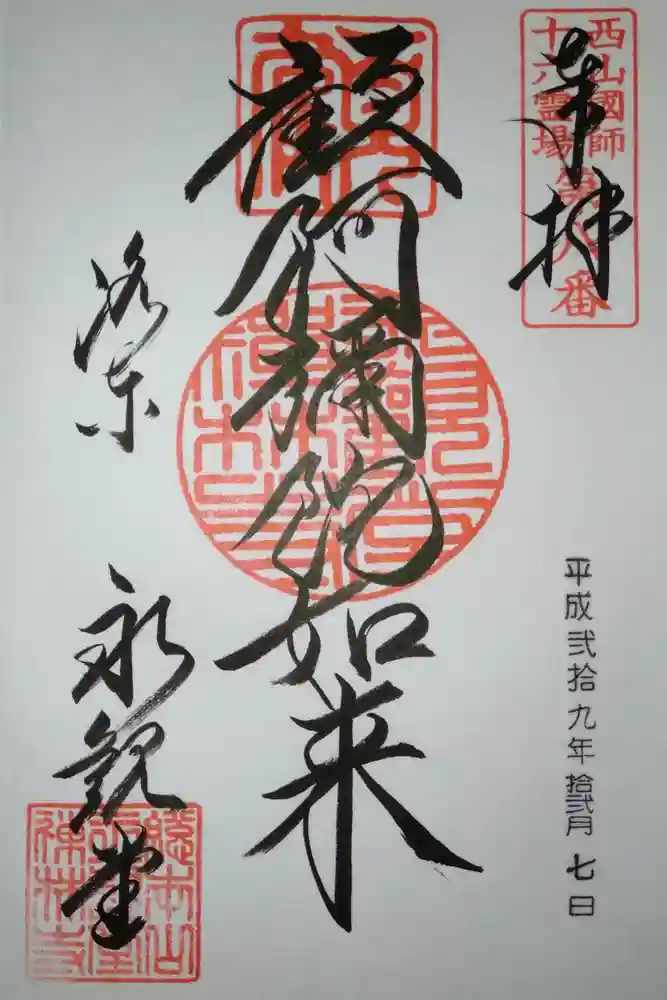 奉拝
西山國師
十六霊場
第八番
平成弐拾九年拾弐月七日
顧阿彌陀如来
洛東
永観堂